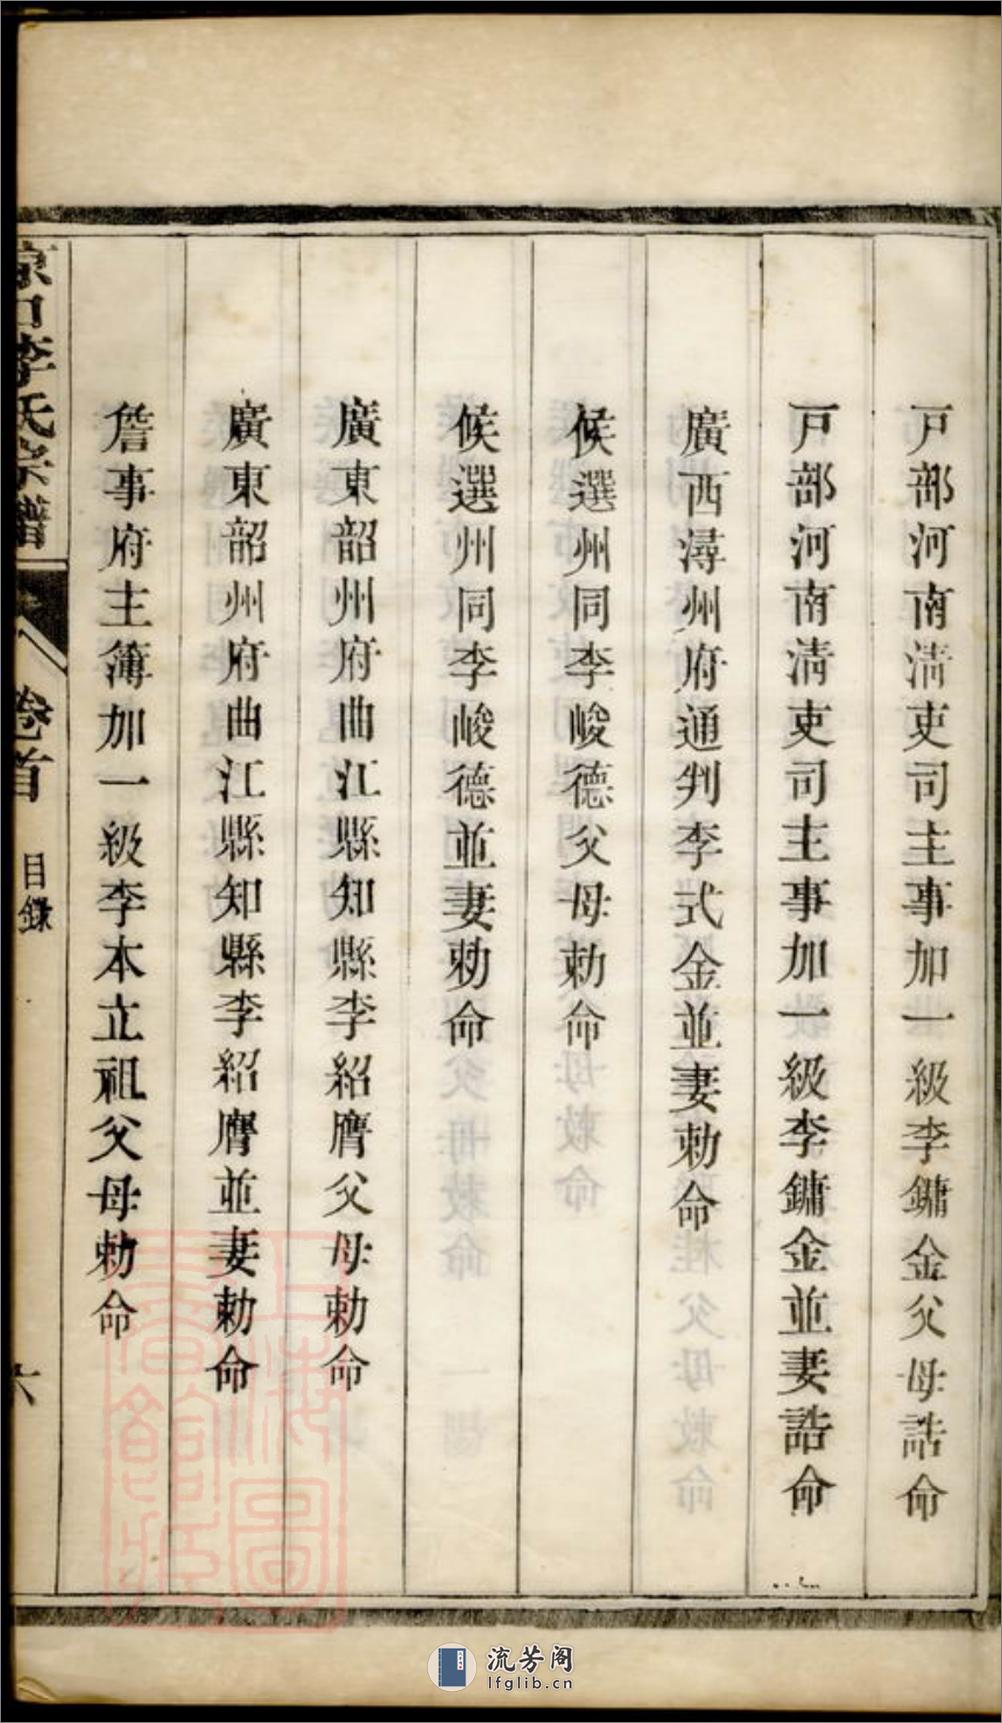 戸部河南淸吏司主事加一級李鏞金父母誥命
戸部河南淸吏司主事加一級李鏞金並妻誥命
廣西潯州府通判李式金並妻勅命
候選州同李峻德父母勅命
候選州同李峻德並妻勅命
廣東韶州府曲江縣知縣李紹膺父母勅命
廣東韶州府曲江縣知縣李紹膺並妻勅命
詹事府主簿加一級李本立祖父母勅命
京口李氏宗譜
卷首
目錄
六
上海圖書館藏
流芳阁
lfglib.cn